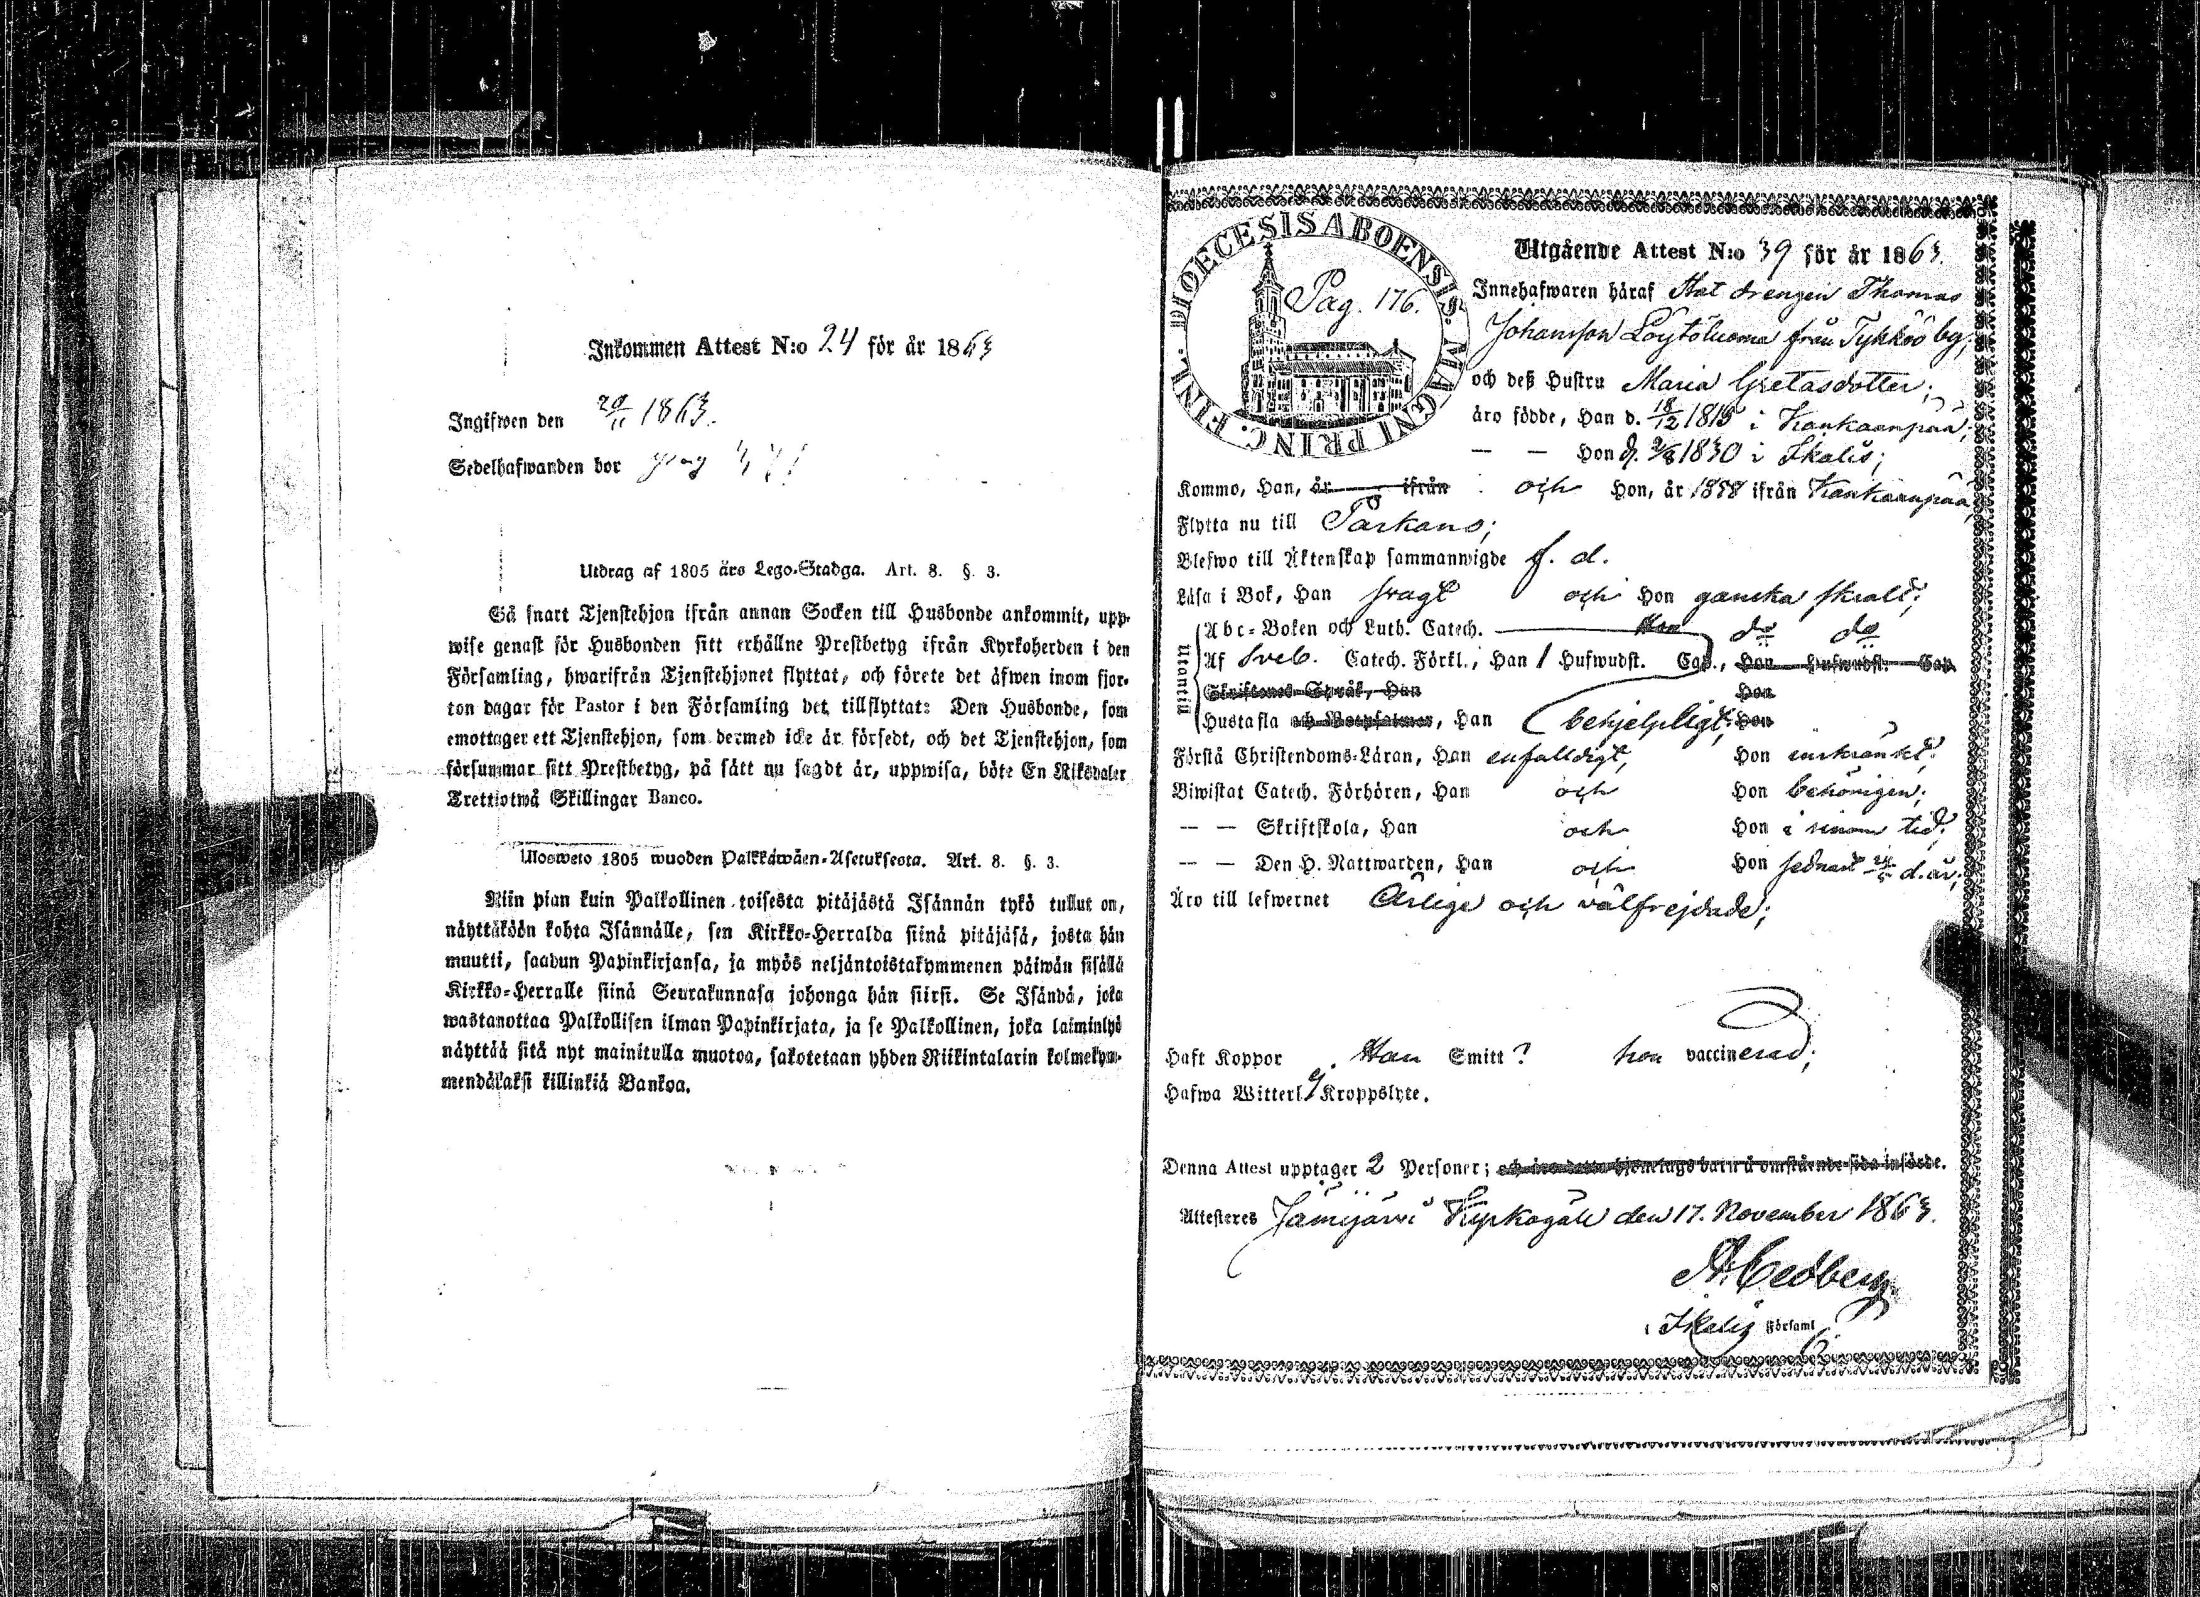 Inkommen Attest N:o 24 för år 1863
Ingifwen den 20/11 1863.
Sedelhafwanden bor pag
Utdrag af 1805 års Lego-Stadga. Art. 8. §. 3.
Så snart Tjenstehjon ifrån annan Socken till Husbonde ankommit, upp-
wise genast för Husbonden sitt erhållne Prestbetyg ifrån Kyrkoherden i den
Församling, hwarifrån Tjenstehjonet flyttat, och förete det äfwen inom fjor-
ton dagar för Pastor i den Församling det tillflyttat: Den Husbonde, som
emottager ett Tjenstehjon, som dermed icke är försedt, och det Tjenstehjon, som
försummar sitt Prestbetyg, på sätt nu sagdt är, uppwisa, böte En Riksdaler
Trettiotwå Skillingar Banco.
Ulosweto 1805 wuoden Palkkawäen-Asetuksesta. Art. 8. §. 3.
Niin pian kuin Palkollinen toisesta pitäjästä Isännän tykö tullut on,
näyttäköön kohta Isännälle, sen Kirkko-Herralda siinä pitäjäsä, josta hän
muutti, saadun Papinkirjansa, ja myös neljäntoistakymmenen päiwän sisällä
Kirkko-Herralle siinä Seurakunnasa johonga hän siirsi. Se Isändä, joka
wastanottaa Palkollisen ilman Papinkirjata, ja se Palkollinen, joka laiminlyö
näyttää sitä nyt mainitulla muotoa, sakotetaan yhden Riikintalarin kolmekym-
mendäkaksi killinkiä Bankoa.
DIOECESIS ABOENSIS. MAGNI PRINC. FINL.
Pag. 176.
Utgående Attest N:o 39 för år 1863.
Innehafwaren häraf Stat drengen Thomas
Johansson Löytöluoma från Tykköö by,
och deß Hustru Maria Gretasdotter;
äro födde, Han d. 18/12 1815 i Kankaanpää;
— — Hon d. 2/8 1830 i Ikalis;
Kommo, Han, år ifrån och Hon, år 1858 ifrån Kankaanpää,
Flytta nu till Parkano;
Blefwo till Äktenskap sammanwigde f. d.
Läsa i Bok, Han svagt och Hon ganska skralt;
Utantill
Abc-Boken och Luth. Catech. Hon do do
Af Sveb. Catech. Förkl., Han 1 Hufwudst. Cap., Han Hufwudst. Cap.
Skriftenes Språk, Han Hon
Hustafla och Botpsalmer, Han behjelpligt, Hon
Förstå Christendoms-Läran, Han enfalldigt, Hon inskränkt;
Biwistat Catech. Förhören, Han och Hon behörigen;
— — Skriftskola, Han och Hon i sinom tid;
— — Den H. Nattwarden, Han och Hon sednast d. år;
Äro till lefwernet Ärlige och välfrejdade;
Haft Koppor Han Smitt? hon vaccinerad;
Hafwa Witterl. ej Kroppslyte.
Denna Attest upptager 2 Personer; och äro detta hjonelags barn å omstående sida införde.
Attesteres Jämijärvi Kyrkogård den 17. November 1863.
Cedberg
i Ikalis Församl.